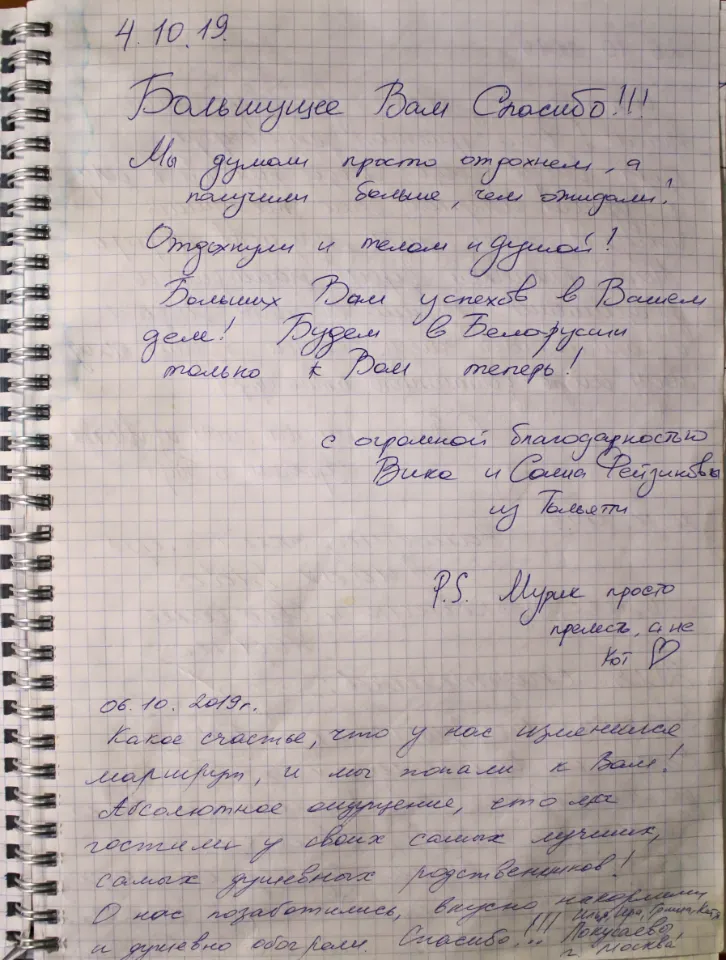 4.10.19.
Большущее Вам Спасибо!!!
Мы думали просто отдохнем, а
получили больше, чем ожидали!
Отдохнули и телом и душой!
Больших Вам успехов в Вашем
деле! Будем в Белоруссии
только к Вам теперь!
с огромной благодарностью
Вика и Саша
из Тольятти
P.S. Мурик просто
прелесть, а не
кот ♡
06.10.2019г.
Какое счастье, что у нас изменился
маршрут, и мы попали к Вам!
Абсолютное ощущение, что мы
гостили у своих самых лучших,
самых душевных родственников!
О нас позаботились, вкусно накормили
и душевно обогрели. Спасибо!!!
г. Москва